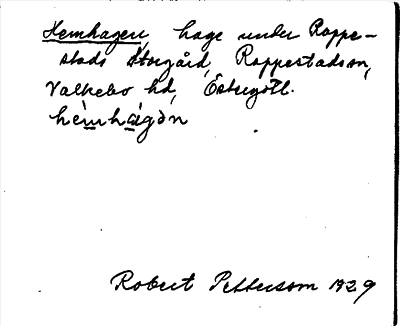 Hemhagen, hage under Rappe-
stads Storgård, Rappestads sn,
Valkebo hd, Östergötl.
hèmhàgən
Robert Pettersson 1929